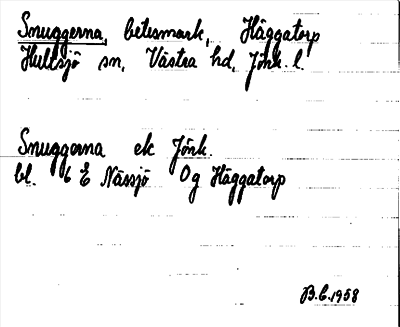 Snuggerna, betesmark, Häggatorp
Hultsjö sn, Västra hd, Jönk. l.
Snuggerna ek Jönk.
bl. 6 E Nässjö Og Häggatorp
B.C. 1958